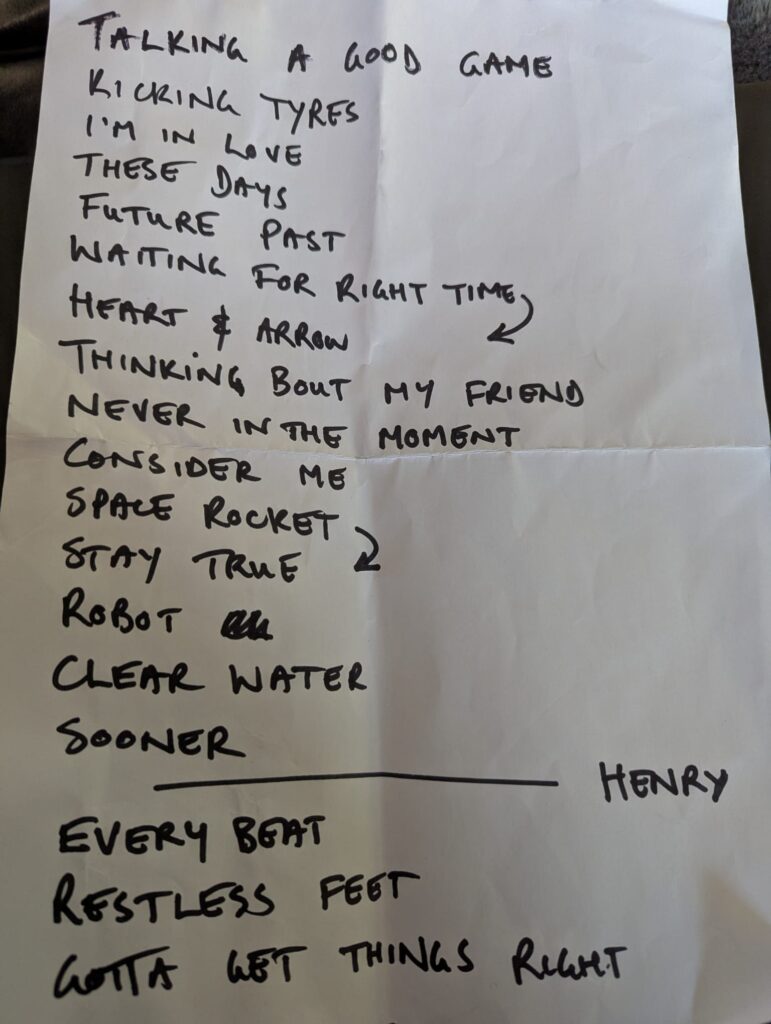 TALKING A GOOD GAME
KICKING TYRES
I'M IN LOVE
THESE DAYS
FUTURE PAST
WAITING FOR RIGHT TIME
HEART & ARROW
THINKING BOUT MY FRIEND
NEVER IN THE MOMENT
CONSIDER ME
SPACE ROCKET
STAY TRUE
ROBOT
CLEAR WATER
SOONER
HENRY
EVERY BEAT
RESTLESS FEET
GOTTA GET THINGS RIGHT